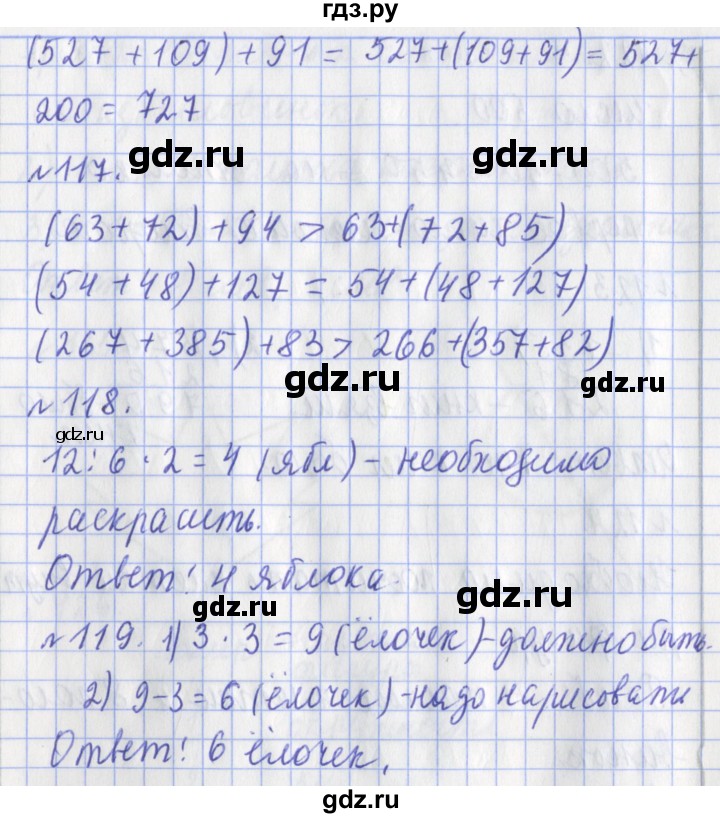 гдз.ру
(527 + 109) + 91 = 527+(109+91) = 527+
200 = 727
gdz.ru gdz.ru
№117.
(63 + 72) + 94 > 63+(72+85)
gdz.ru
(54 + 48) + 127 = 54 + (48 + 127)
(267 + 385) + 83 > 266 +(357+82)
gdz.ru gdz.ru
№118.
gdz.ru
12 : 6 · 2 = 4 (ябл) – необходимо
раскрасить.
gdz.ru
Ответ! 4 яблока.
gdz.ru gdz.ru
№119. 1) 3 · 3 = 9 (ёлочек)-должно быть.
2) 9-3 = 6 (ёлочек)-надо нарисовать
gdz.ru
Ответ! 6 ёлочек.
gdz.ru gdz.ru